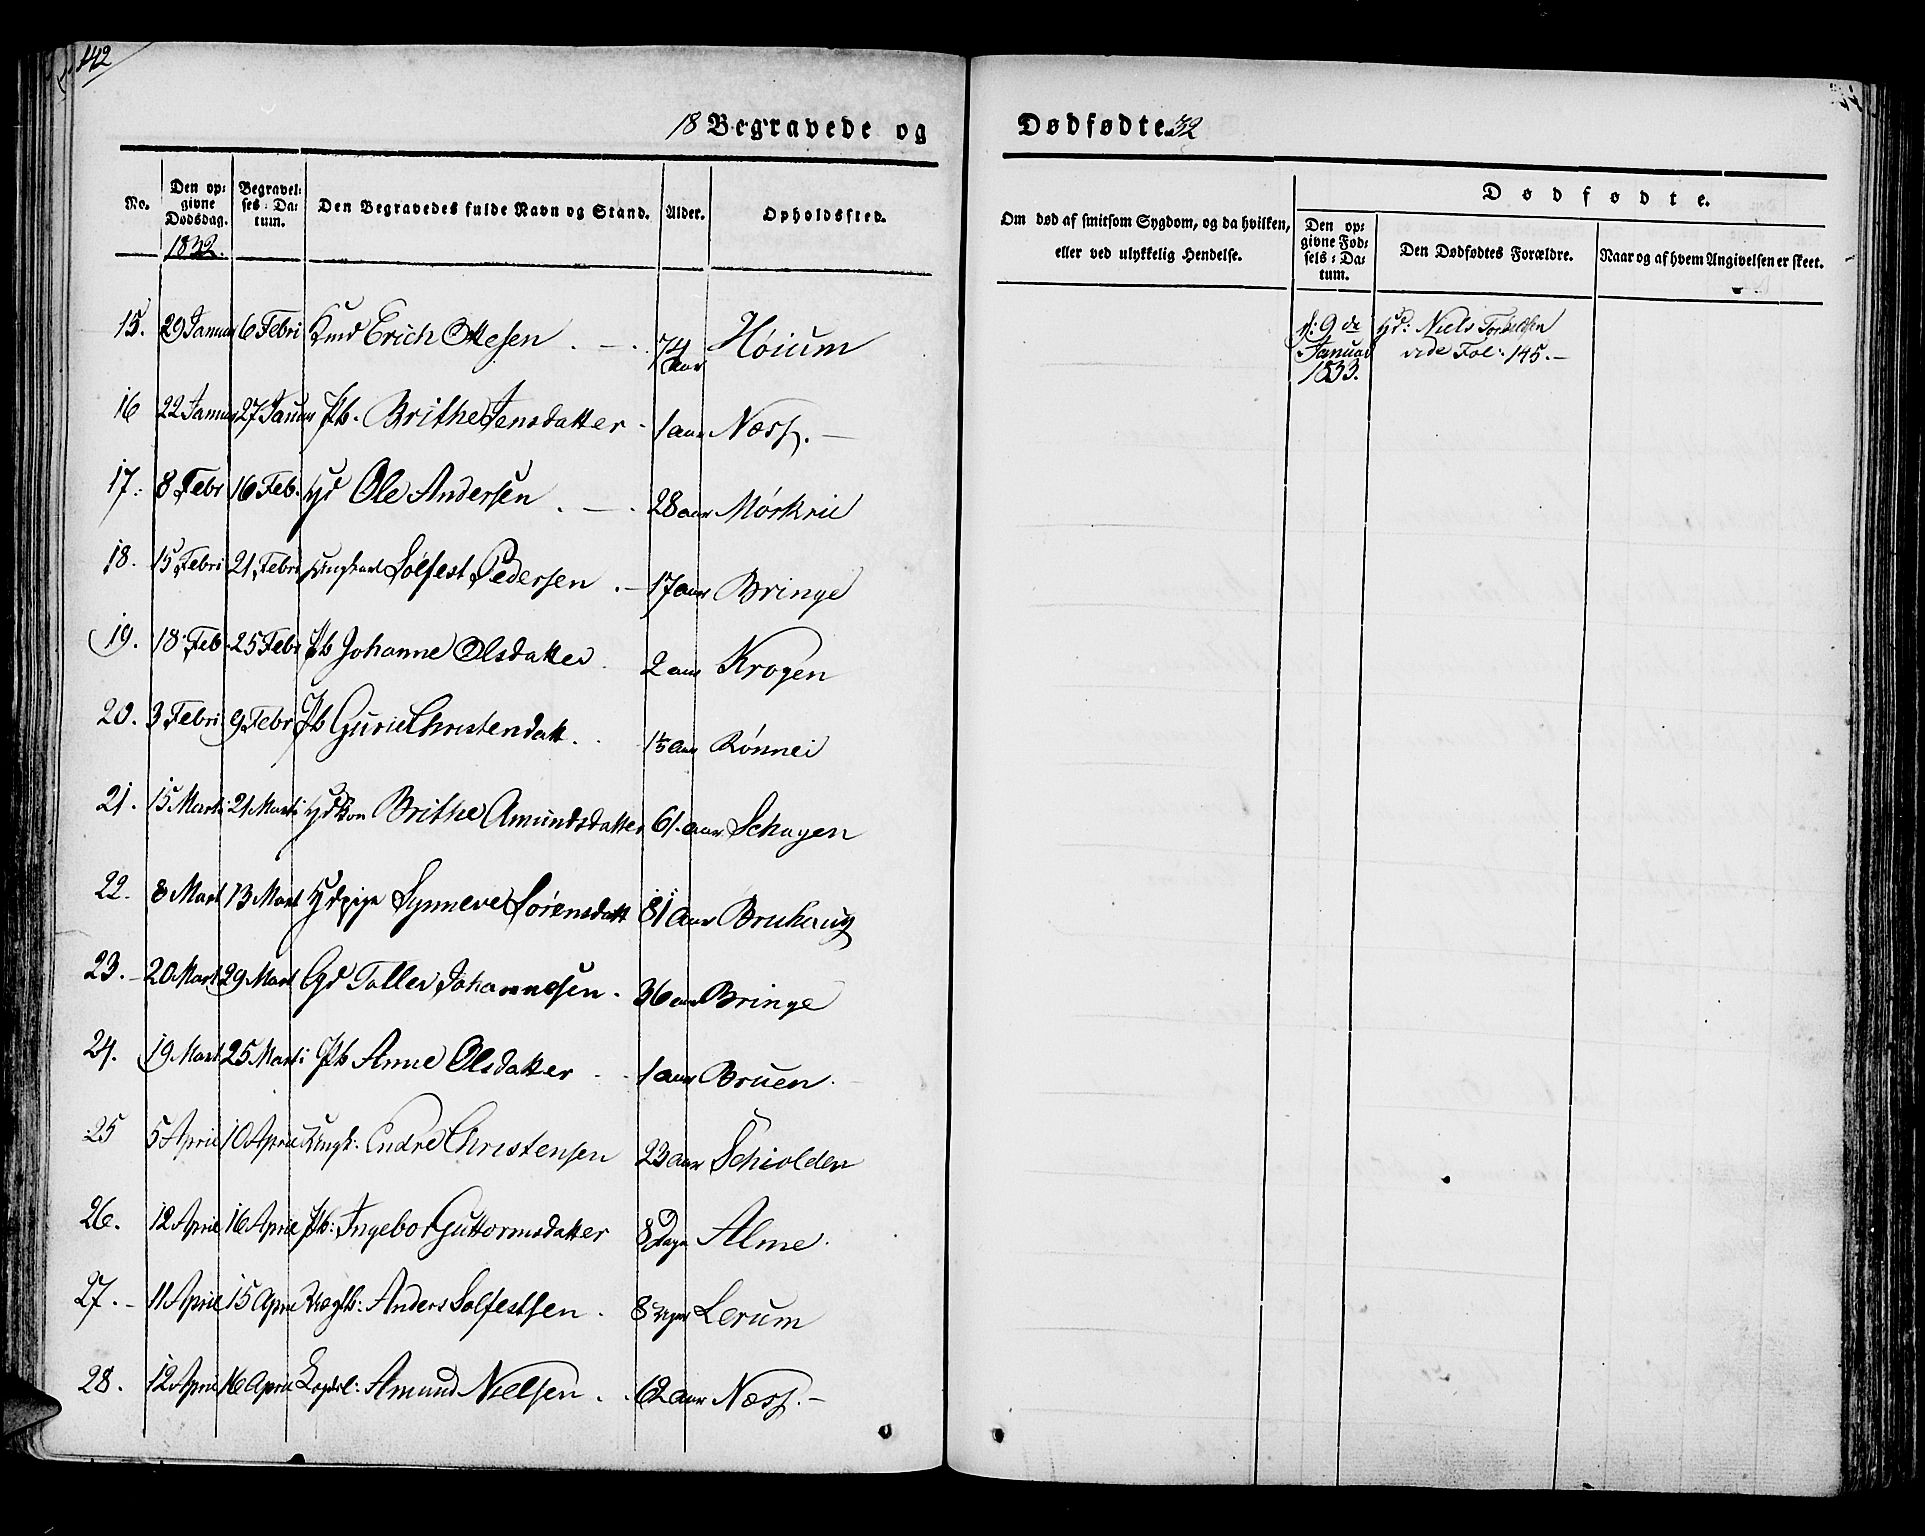 142
18 Begravede og Dødfødte 32
No.
Den op-
givne
Dødsdag.
1832.
Begravel-
ses-Da-
tum.
Den Begravedes fulde Navn og Stand.
Alder.
Opholdssted.
Om død af smitsom Sygdom, og da hvilken,
eller ved ulykkelig Hendelse.
Dødfødte.
Den op-
givne Fød-
sels-Da-
tum.
Den Dødfødtes Forældre.
Naar og af hvem Angivelsen er skeet.
15. 29 Januar 6 Febri Kmd Erich Ottesen 74 Aar Høium
d: 9 de
Januar
1833.
Hd: Niels
vide Fol: 145.
16 22 Januar 27 Januar Pb. Brithe Jensdatter 1 aar Næss.
17. 8 Febr 16 Feb. Hd Ole Andersen 28 aar Mørkrie
18. 15 Febri 21 Febri Ungkarl Solfest Pedersen 17 aar Bringe
19. 18 Feb. 25 Febr Pb Johanne Olsdatter 2 aar Krogen
20. 3 Febri 9 Febr Pb Gurie Christensdatt. aar Rønnei
21. 15 Marti 21 Marti Hdkon Brithe Amundsdatter 61 aar Schagen
22. 8 Mart 13 Mart Hdpige Synneve Sørensdatt 81 Aar Bruhaug
23. 20 Mart 29 Mart Gd Tollev Johannesen 36 aar Bringe
24. 19 Mart 25 Marti Pb Anne Olsdatter 1 aar Bruen.
25 5 April 10 April Ungk: Endre Christensen 23 aar Schiolden
26. 12 April 16 April Pb: Ingebor Guttormsdatter 8 Dage Alme.
27. 11 April 15 April Anders Solfestsen 8 Uger Lerum
28. 12 April 16 April Amund Nielsen 62 aar Næss.